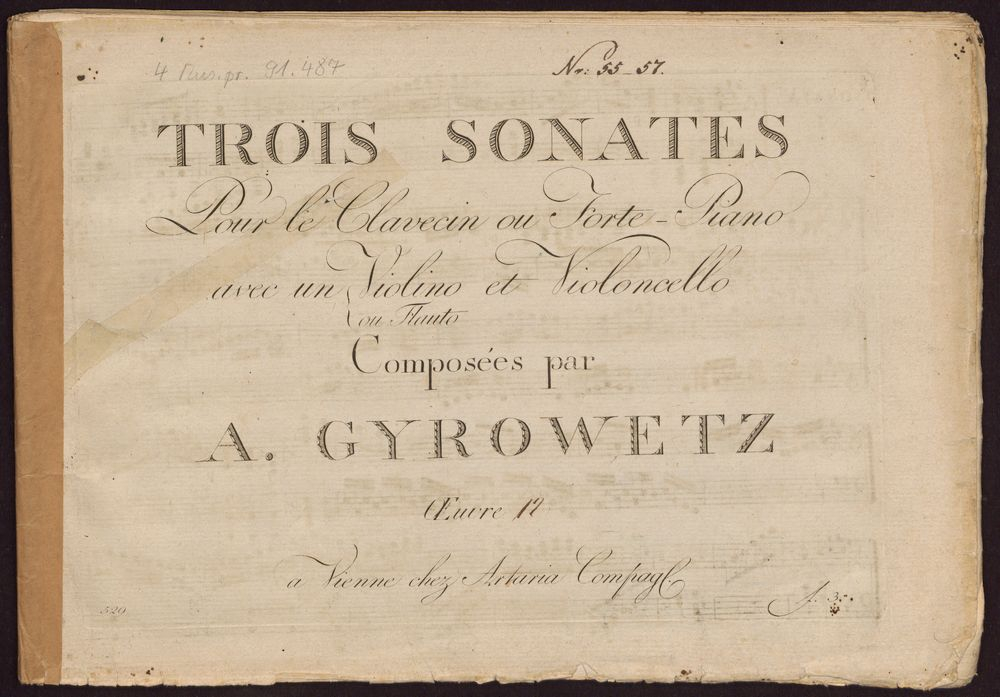 4 Mus.pr. 91.487
Nr: 55-57.
TROIS SONATES
Pour le Clavecin ou Forte-Piano
avec un Violino et Violoncello
ou Flauto
Composées par
A. GYROWETZ
Œuvre 12
a Vienne chez Artaria Compag.
529
f. 3.